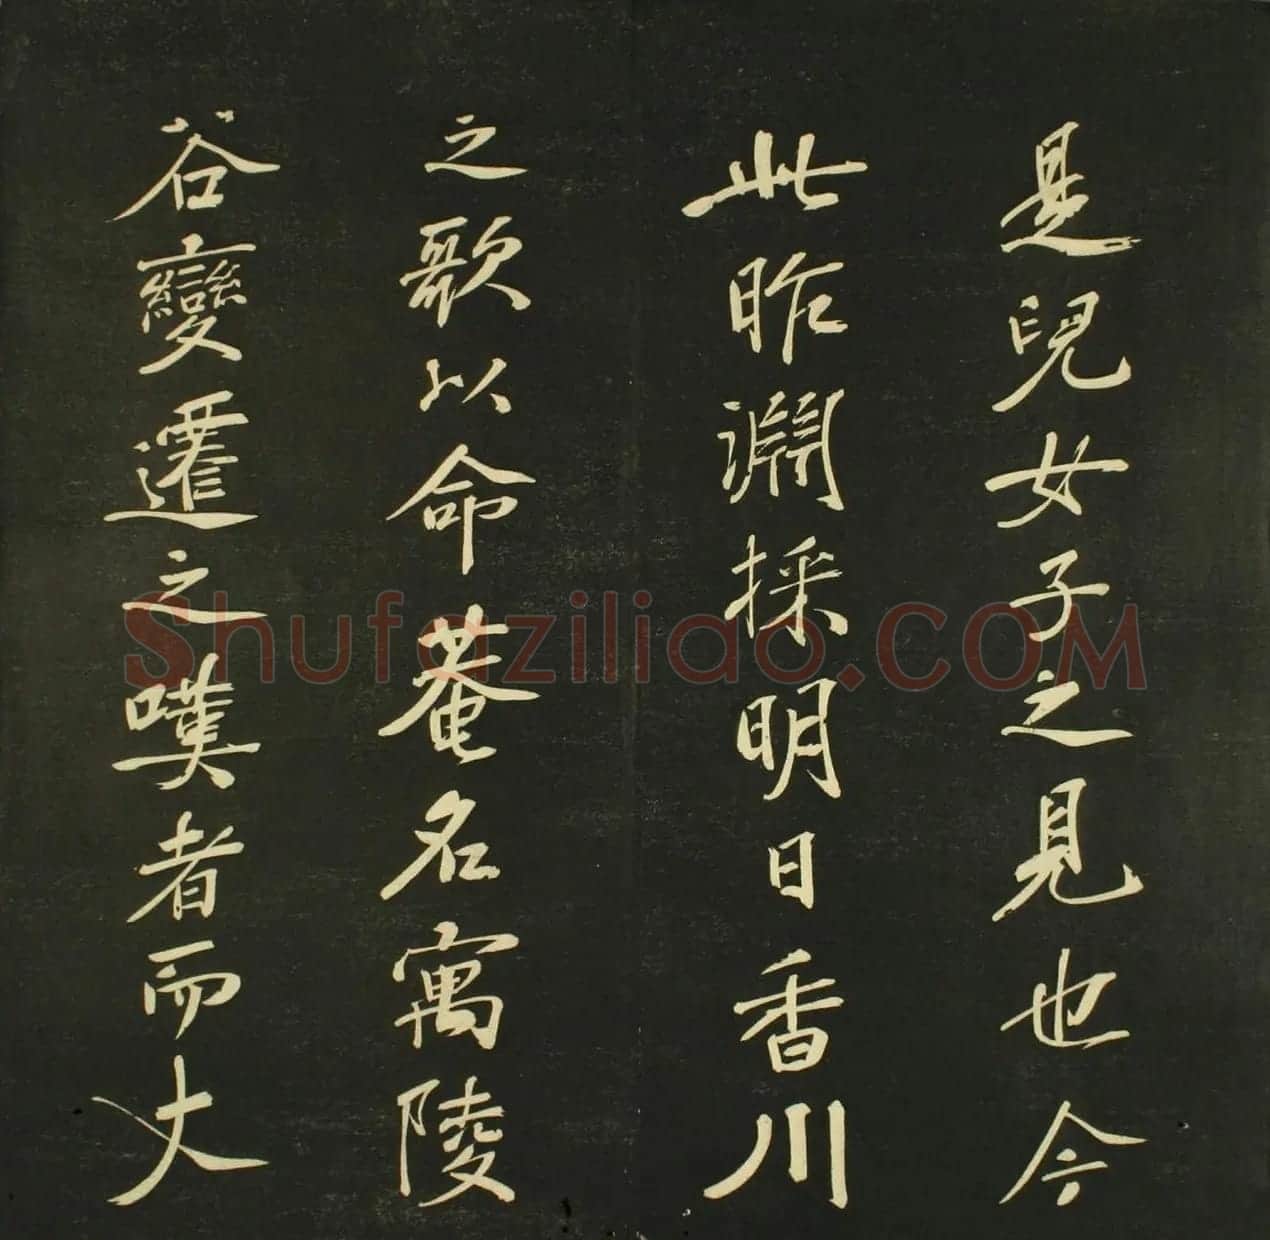 是兒女子之見也今
此昨澗採明日香川
之歌以命菴名寓陵
谷變遷之嘆者而丈
Shufaziliao.COM